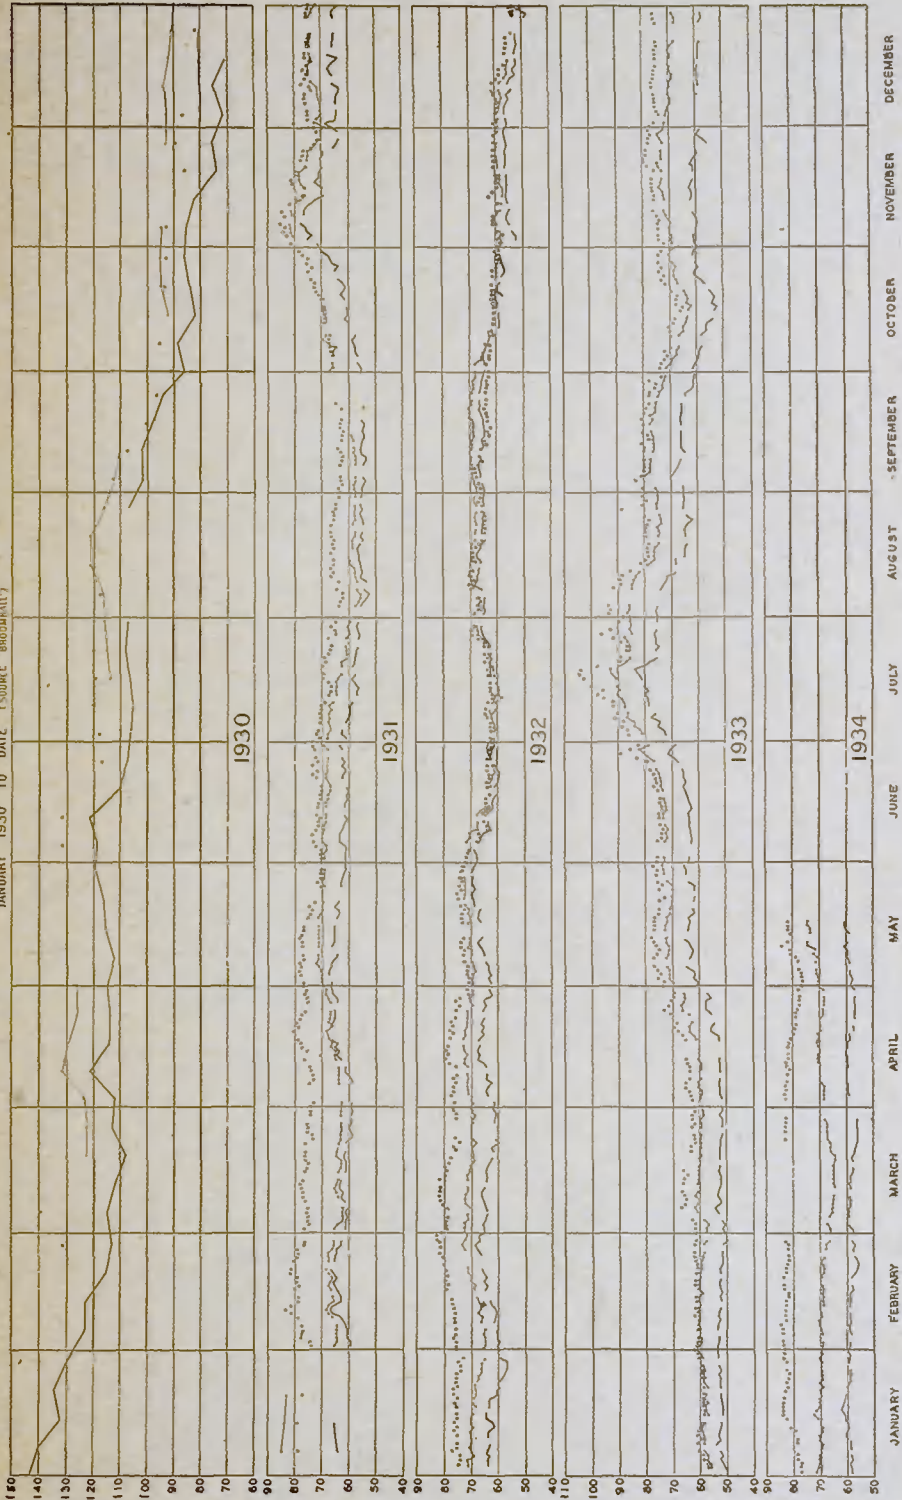 JANUARY 1930 TO DATE (SOURCE BROOMHALL)
150
140
130
120
110
100
90
80
70
60
1930
90
80
70
60
50
40
1931
90
80
70
60
50
40
1932
110
100
90
80
70
60
50
40
1933
90
80
70
60
50
1934
JANUARY
FEBRUARY
MARCH
APRIL
MAY
JUNE
JULY
AUGUST
SEPTEMBER
OCTOBER
NOVEMBER
DECEMBER